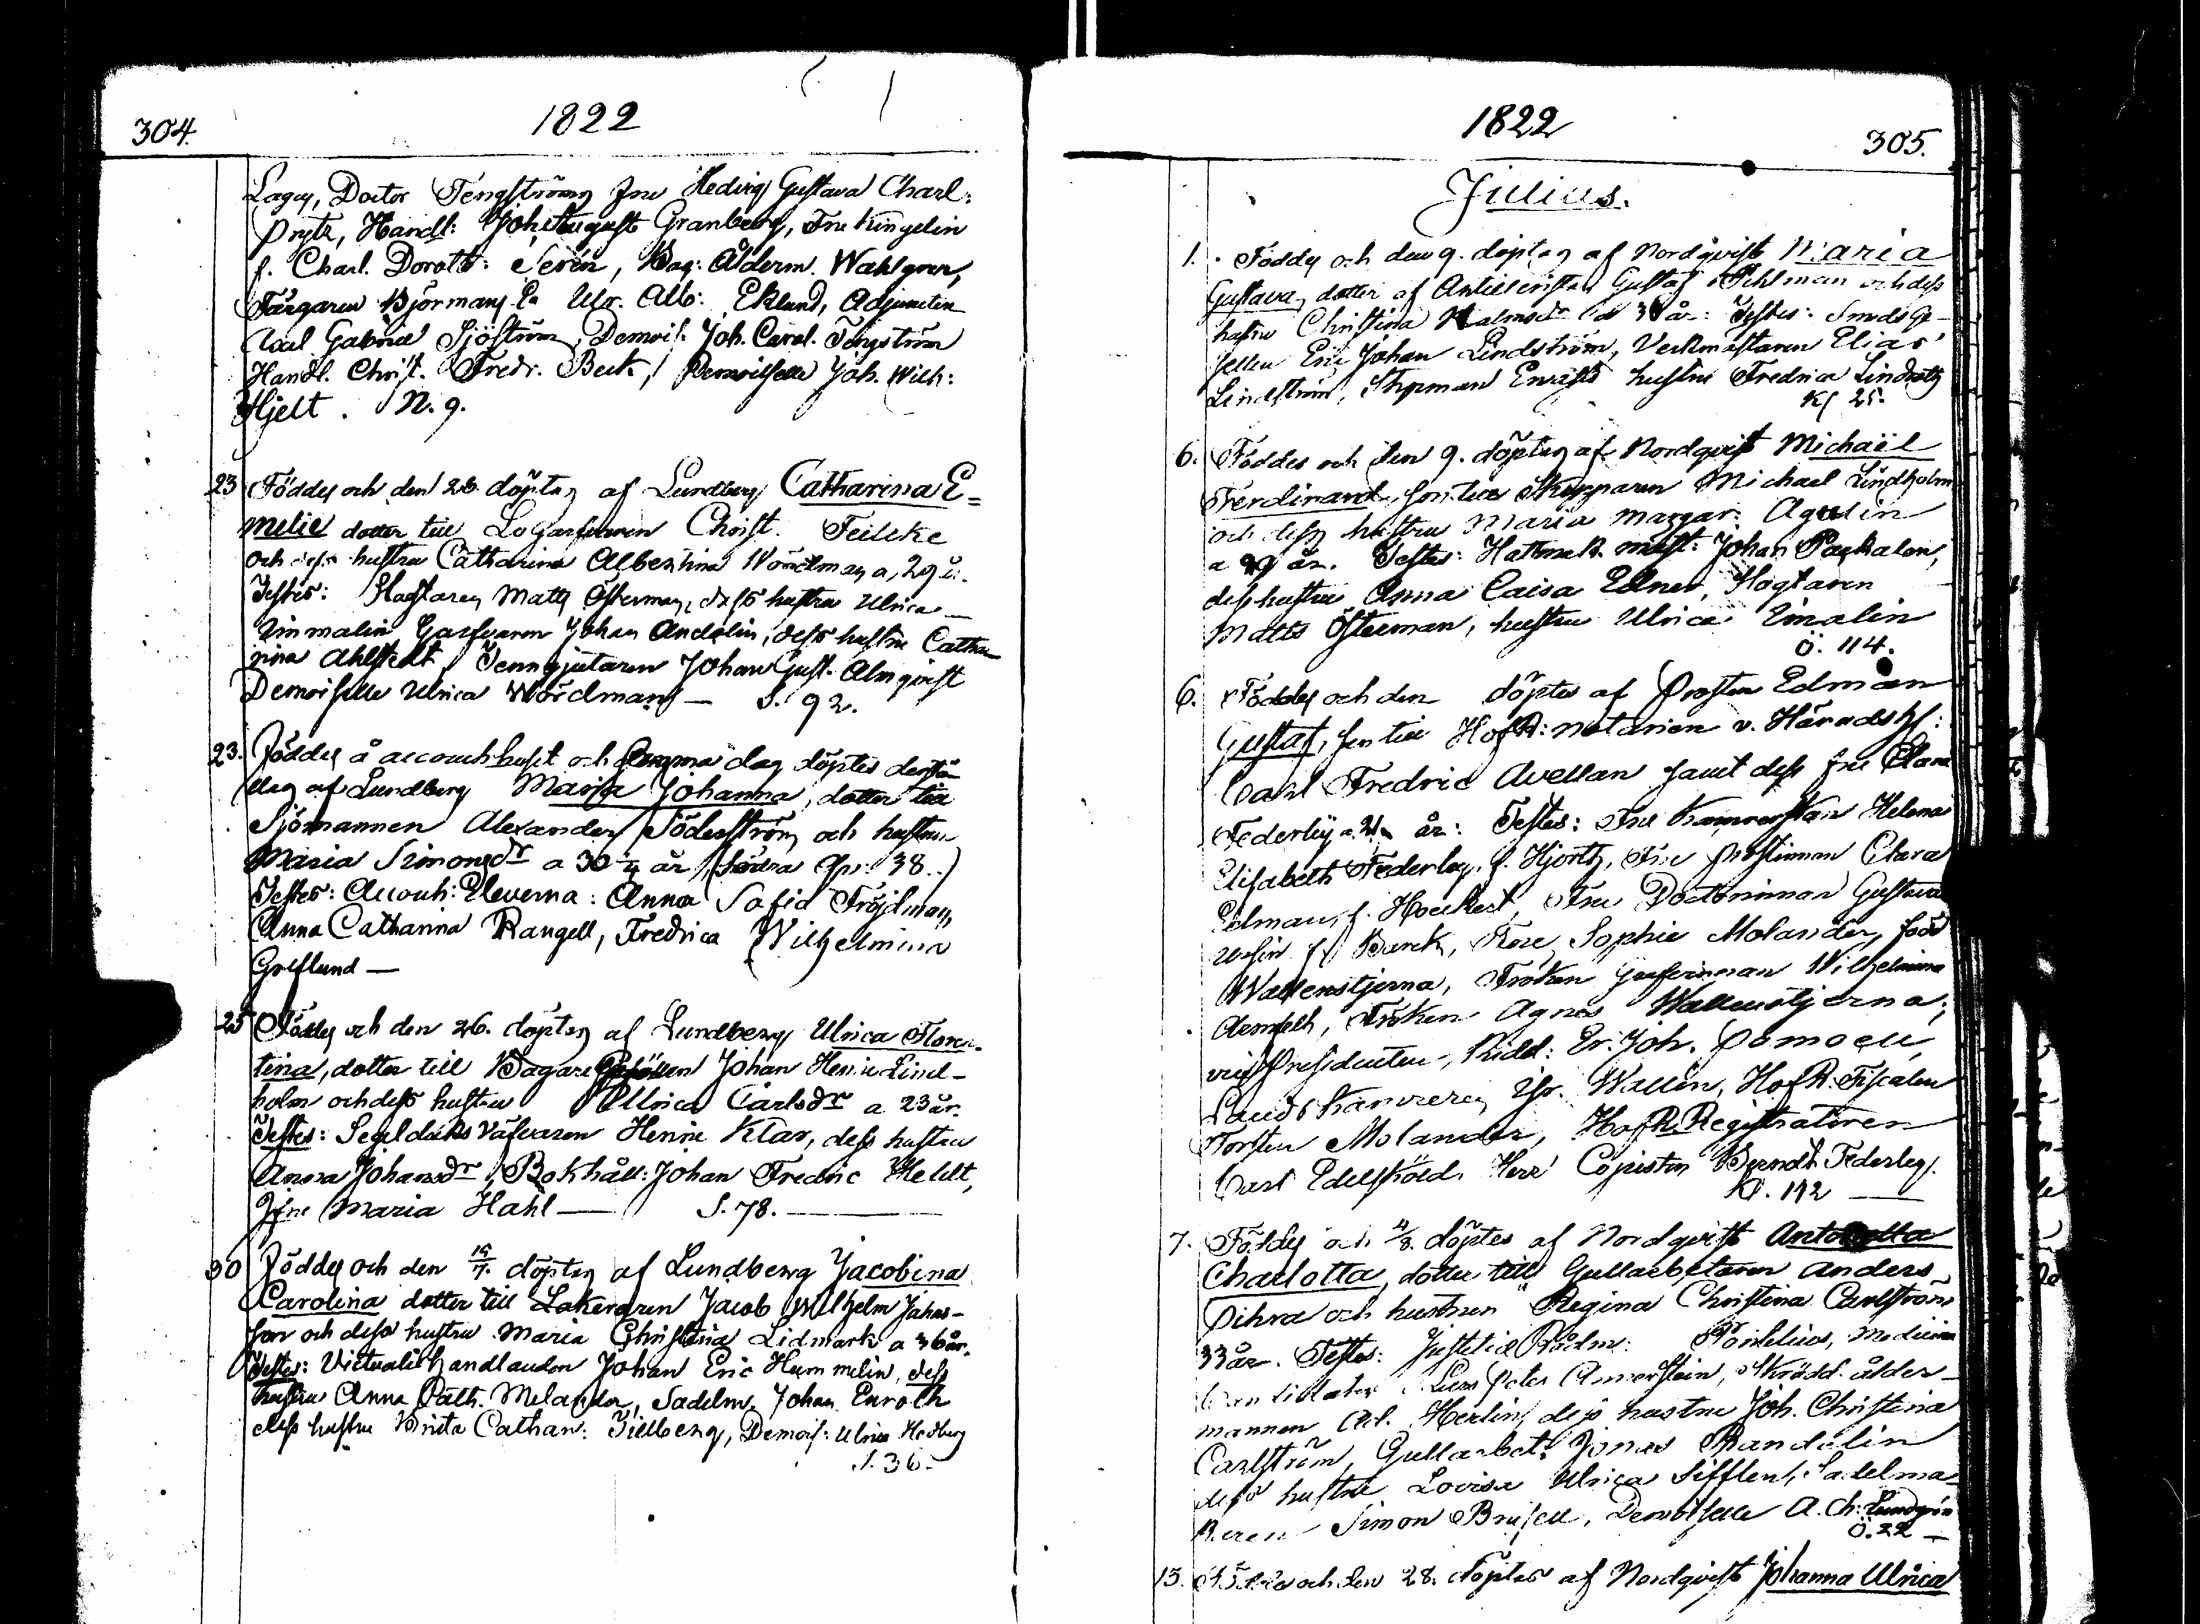 304.
1822
Lagus, Doctor Tengström, Fru Hedvig Gustava Charl:
Prytz, Handl: Joh. August Granberg, Fru Kingelin
f. Charl. Doroth: Serén, Bag: Ålderm. Wahlgren,
Färgaren Björman, Ulr. Alb: Eklund, Adjuncten
Axel Gabriel Sjöström, Demois: Joh. Carol. Tengström
Handl. Christ. Fredr. Beck, Demoiselle Joh. Wilh:
Hjelt. N. 9.
23 Föddes och den 26. döptes af Lundberg Catharina E-
melie dotter till Logarfvaren Christ. Teilcke
och dess hustru Catharina Albertina Nordman a, 29 år.
Testes: Hagtaren Matts Österman, dess hustru Ulrica
Zinmalin, Garfvaren Johan Andelin, dess hustru Catha-
rina Ahlstedt, Tenngjutaren Johan Gust. Almqvist
Demoiselle Ulrica Nordman — S. 92.
23. Föddes å accouchhuset och samma dag döptes derstä-
des af Lundberg Maria Johanna, dotter till
Sjömannen Alexander Söderström och hustrun
Maria Simonsdr a 30 år (Södra Qv: 38.)
Testes: Accouch: Eleverna: Anna Sofia Fröjdman,
Anna Catharina Rangell, Fredrica Wilhelmina
Greflund —
25 Föddes och den 26. döptes af Lundberg Ulrica Floren-
tina, dotter till Bagare Gesällen Johan Henric Lind-
holm och dess hustru Ulrica Carlsdr a 23 år.
Testes: Segelduks Väfvaren Henric Klar, dess hustru
Anna Johansdr, Bokhåll: Johan Fredric Heldt,
Jfru Maria Hahl — S. 78. —
30 Föddes och den 14/7. döptes af Lundberg Jacobina
Carolina dotter till Lakeraren Jacob Wilhelm Johans-
son och dess hustru Maria Christina Lidmark a 36 år.
Testes: Victualiehandlanden Johan Eric Hummelin, dess
hustru Anna Cath. Melander, Sadelm. Johan Enroth
dess hustru Brita Cathar: Tillberg, Demois: Ulrica Hedberg
S. 36.
1822
305.
Julius.
1. Föddes och den 9. döptes af Nordqvist Maria
Gustava, dotter af Gustaf Pihlman och dess
hustru Christina Malmsdr år: Testes: Smeds Ge-
sellen Eric Johan Lindström, Verkmästaren Elias
Lindström, Styrman Enqvists hustru Fredrica
Kl 25.
6. Föddes och den 9. döptes af Nordqvist Michaël
Ferdinand, son till Skepparen Michael Lindholm
och dess hustru Maria Margar: Agrelin
a 29 år. Testes: Hattmak. mäst: Johan Packalen,
dess hustru Anna Caisa Edner, Hagtaren
Matts Österman, hustru Ulrica Zimalin
Ö. 114.
6. Föddes och den döptes af Prosten Edman
Gustaf, son till HofR: Notarien v. Häradsh:
Carl Fredric Avellan samt dess fru Clara
Federley a. år: Testes: Fru Kamrerskan Helena
Elisabeth Federley, f. Hjorth, Fru Prostinnan Clara
Edman, f. Hoeckert, Fru Doctorinnan Gustava
f. Barck, Fru Sophie Molander, född
Wallenstjerna, Fröken Grefvinnan Wilhelmina
Armfelt, Fröken Agnes Wallenstjerna,
vice Presidenten, Ridd: Er. Joh. Pomoell,
Landskamreren Wallén, HofR. Fiscalen
Torsten Molander, HofR. Registratoren
Carl Edelsköld Herr Copisten Berndt Federley.
Kl. 112 —
7. Föddes och 4/8. döptes af Nordqvist Antonetta
Charlotta, dotter till Gullarbetaren Anders
Pihra och hustrun Regina Christina Carlström
33 år. Testes: Justitie Rådm: Medicine
Candidaten Lars Peter Amnerstein, Skrädd. ålder-
mannen Carl. Herlin, dess hustru Joh. Christina
Carlström, Gullarbet: Jonas Randelin
dess hustru Lovisa Ulrica Sifflen, Sadelma-
karen Simon Brusell, Demoiselle A. Ch: Lundgrén
Ö. 22 —
13. Föddes och den 28. döptes af Nordqvist Johanna Ulrica